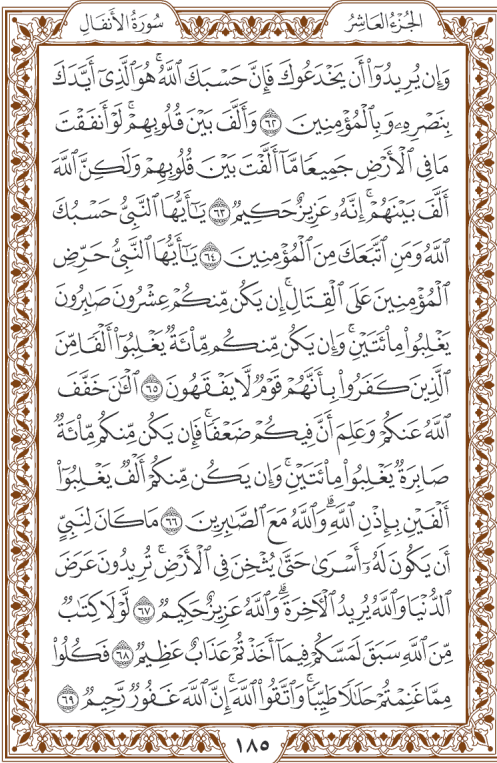 الجزء العاشر
سورة الأنفال
وَإِن يُرِيدُوٓا۟ أَن يَخْدَعُوكَ فَإِنَّ حَسْبَكَ ٱللَّهُ ۚ هُوَ ٱلَّذِىٓ أَيَّدَكَ
بِنَصْرِهِۦ وَبِٱلْمُؤْمِنِينَ ٦٢ وَأَلَّفَ بَيْنَ قُلُوبِهِمْ ۚ لَوْ أَنفَقْتَ
مَا فِى ٱلْأَرْضِ جَمِيعًا مَّآ أَلَّفْتَ بَيْنَ قُلُوبِهِمْ وَلَٰكِنَّ ٱللَّهَ
أَلَّفَ بَيْنَهُمْ ۚ إِنَّهُۥ عَزِيزٌ حَكِيمٌ ٦٣ يَٰٓأَيُّهَا ٱلنَّبِىُّ حَسْبُكَ
ٱللَّهُ وَمَنِ ٱتَّبَعَكَ مِنَ ٱلْمُؤْمِنِينَ ٦٤ يَٰٓأَيُّهَا ٱلنَّبِىُّ حَرِّضِ
ٱلْمُؤْمِنِينَ عَلَى ٱلْقِتَالِ ۚ إِن يَكُن مِّنكُمْ عِشْرُونَ صَٰبِرُونَ
يَغْلِبُوا۟ مِا۟ئَتَيْنِ ۚ وَإِن يَكُن مِّنكُم مِّا۟ئَةٌ يَغْلِبُوٓا۟ أَلْفًا مِّنَ
ٱلَّذِينَ كَفَرُوا۟ بِأَنَّهُمْ قَوْمٌ لَّا يَفْقَهُونَ ٦٥ ٱلْـَٰٔنَ خَفَّفَ
ٱللَّهُ عَنكُمْ وَعَلِمَ أَنَّ فِيكُمْ ضَعْفًا ۚ فَإِن يَكُن مِّنكُم مِّا۟ئَةٌ
صَابِرَةٌ يَغْلِبُوا۟ مِا۟ئَتَيْنِ ۚ وَإِن يَكُن مِّنكُمْ أَلْفٌ يَغْلِبُوٓا۟
أَلْفَيْنِ بِإِذْنِ ٱللَّهِ ۗ وَٱللَّهُ مَعَ ٱلصَّٰبِرِينَ ٦٦ مَا كَانَ لِنَبِىٍّ
أَن يَكُونَ لَهُۥٓ أَسْرَىٰ حَتَّىٰ يُثْخِنَ فِى ٱلْأَرْضِ ۚ تُرِيدُونَ عَرَضَ
ٱلدُّنْيَا وَٱللَّهُ يُرِيدُ ٱلْـَٔاخِرَةَ ۗ وَٱللَّهُ عَزِيزٌ حَكِيمٌ ٦٧ لَّوْلَا كِتَٰبٌ
مِّنَ ٱللَّهِ سَبَقَ لَمَسَّكُمْ فِيمَآ أَخَذْتُمْ عَذَابٌ عَظِيمٌ ٦٨ فَكُلُوا۟
مِمَّا غَنِمْتُمْ حَلَٰلًا طَيِّبًا ۚ وَٱتَّقُوا۟ ٱللَّهَ ۚ إِنَّ ٱللَّهَ غَفُورٌ رَّحِيمٌ ٦٩
١٨٥